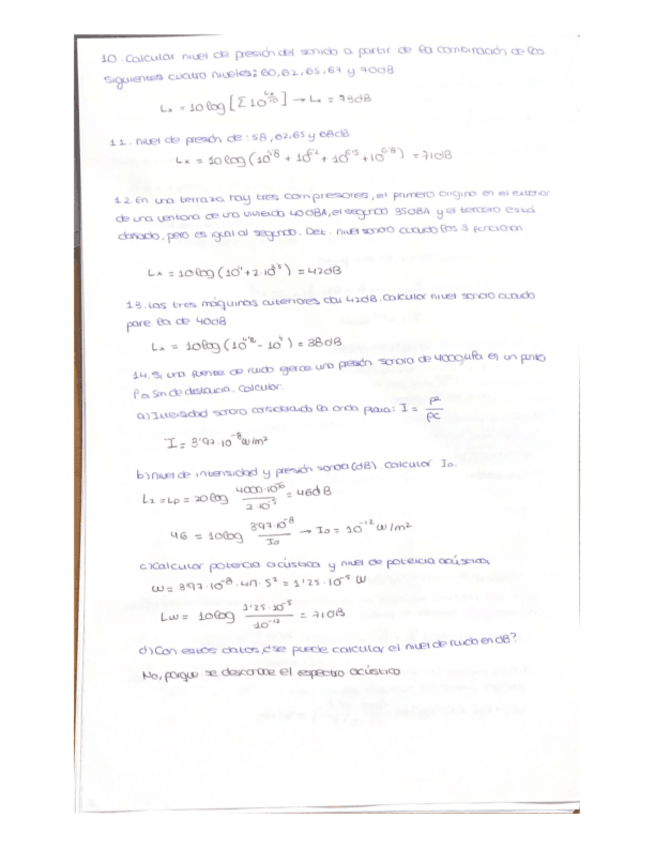 10. Calcular nivel de presión del sonido a partir de la combinación de los
siguientes cuatro niveles: 60, 62, 65, 67 y 70dB
Lx = 10log [Σ 10^(Lx/10)] → Lx = 73dB
11. Nivel de presión de: 58, 62, 65 y 68dB
Lx = 10log (10^5'8 + 10^6'2 + 10^6'5 + 10^6'8) = 71dB
12 En una terraza hay tres compresores, el primero origina en el exterior
de una ventana de una vivienda 40dBA, el segundo 35dBA y el tercero está
dañado, pero es igual al segundo. Det. nivel sonoro cuando los 3 funcionan
Lx = 10log (10^4 + 2·10^3'5) = 42dB
13. Las tres máquinas anteriores dan 42dB. Calcular nivel sonoro cuando
pare la de 40dB
Lx = 10log (10^4'2 - 10^4) = 38dB
14. Si una fuente de ruido ejerce una presión sonora de 4000μPa en un punto
P a 5m de distancia. Calcular.
a) Intensidad sonora considerando la onda plana: I = P²/ρc
I = 3'97·10^-8 W/m²
b) Nivel de intensidad y presión sonora (dB). Calcular Io.
LI = Lp = 20log (4000·10^-6)/(2·10^-5) = 46dB
46 = 10log (3'97·10^-8)/Io → Io = 10^-12 W/m²
c) Calcular potencia acústica y nivel de potencia acústica,
W = 3'97·10^-8 · 4π · 5² = 1'25·10^-5 W
Lw = 10log (1'25·10^-5)/(10^-12) = 71dB
d) Con estos datos, ¿se puede calcular el nivel de ruido en dB?
No, porque se desconoce el espectro acústico